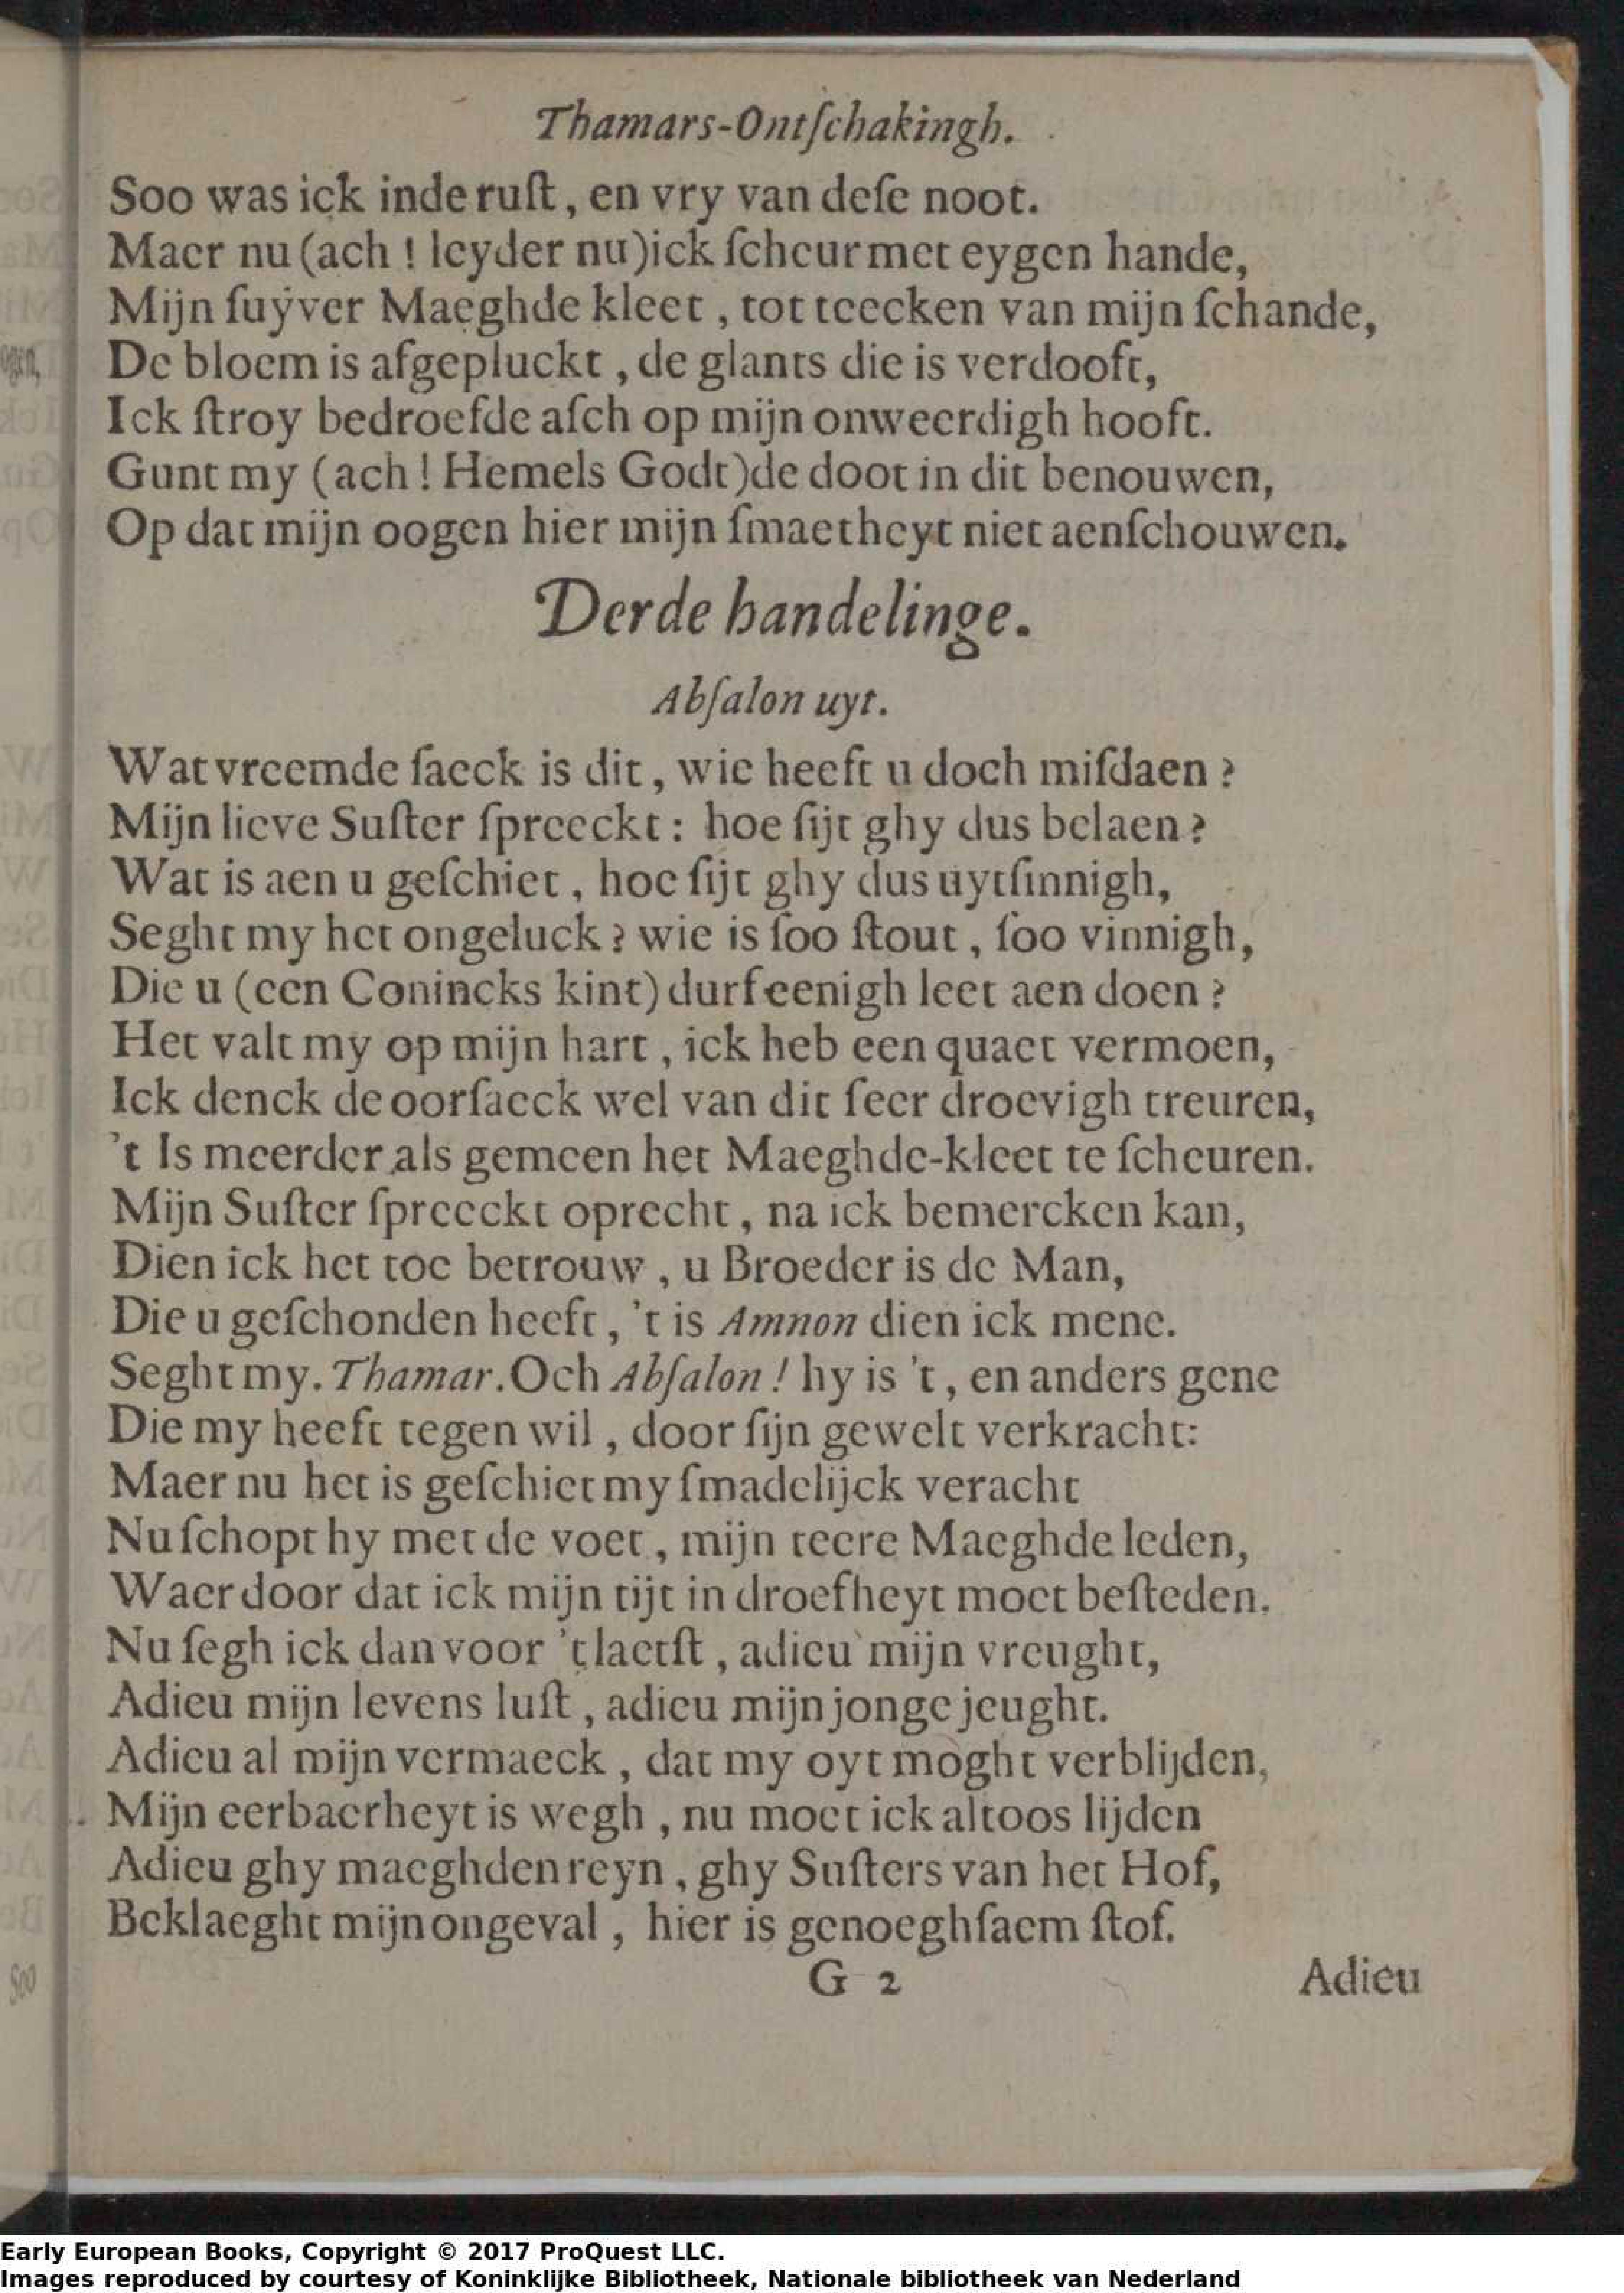 Thamars-Ontſchakingh.
Soo was ick inde ruſt, en vry van deſe noot.
Maer nu (ach ! leyder nu) ick ſcheur met eygen hande,
Mijn ſuyver Maeghde kleet, tot teecken van mijn ſchande,
De bloem is afgepluckt, de glants die is verdooft,
Ick ſtroy bedroefde aſch op mijn onweerdigh hooft.
Gunt my (ach ! Hemels Godt) de doot in dit benouwen,
Op dat mijn oogen hier mijn ſmaetheyt niet aenſchouwen.
Derde handelinge.
Abſalon uyt.
Wat vreemde ſaeck is dit, wie heeft u doch miſdaen ?
Mijn lieve Suſter ſpreeckt : hoe ſijt ghy dus belaen ?
Wat is aen u geſchiet, hoe ſijt ghy dus uytſinnigh,
Seght my het ongeluck ? wie is ſoo ſtout, ſoo vinnigh,
Die u (een Conincks kint) durf eenigh leet aen doen ?
Het valt my op mijn hart, ick heb een quaet vermoen,
Ick denck de oorſaeck wel van dit ſeer droevigh treuren,
't Is meerder als gemeen het Maeghde-kleet te ſcheuren.
Mijn Suſter ſpreeckt oprecht, na ick bemercken kan,
Dien ick het toe betrouw, u Broeder is de Man,
Die u geſchonden heeft, 't is Amnon dien ick mene.
Seght my. Thamar. Och Abſalon ! hy is 't, en anders gene
Die my heeft tegen wil, door ſijn gewelt verkracht:
Maer nu het is geſchiet my ſmadelijck veracht
Nu ſchopt hy met de voet, mijn teere Maeghde leden,
Waer door dat ick mijn tijt in droefheyt moet beſteden.
Nu ſegh ick dan voor 't laetſt, adieu mijn vreught,
Adieu mijn levens luſt, adieu mijn jonge jeught.
Adieu al mijn vermaeck, dat my oyt moght verblijden,
Mijn eerbaerheyt is wegh, nu moet ick altoos lijden
Adieu ghy maeghden reyn, ghy Suſters van het Hof,
Beklaeght mijn ongeval, hier is genoeghſaem ſtof.
G 2 Adieu
Early European Books, Copyright © 2017 ProQuest LLC.
Images reproduced by courtesy of Koninklijke Bibliotheek, Nationale bibliotheek van Nederland